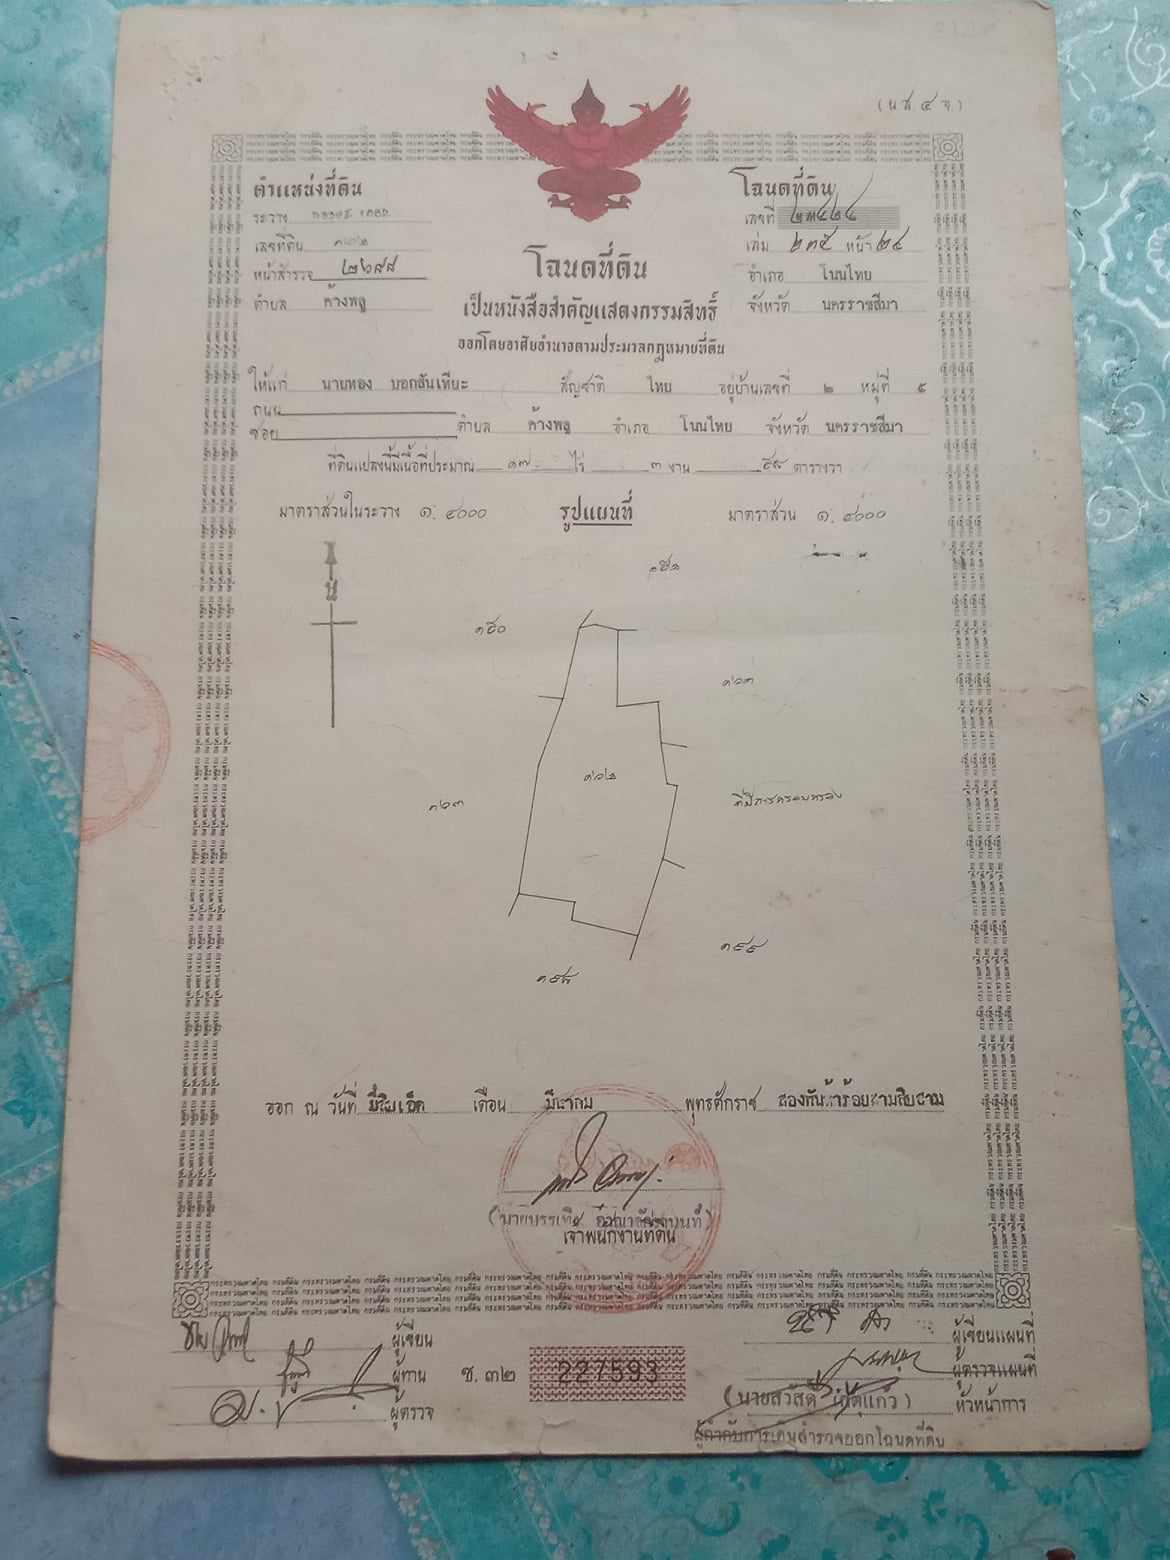 (น.ส. ๔ จ.)
ตำแหน่งที่ดิน
ระวาง
เลขที่ดิน
หน้าสำรวจ ๒๖๙๘
ตำบล ค้างพลู
โฉนดที่ดิน
เลขที่ ๒๓๔๒๔
เล่ม ๒๓๕ หน้า ๒๔
อำเภอ โนนไทย
จังหวัด นครราชสีมา
โฉนดที่ดิน
เป็นหนังสือสำคัญแสดงกรรมสิทธิ์
ออกโดยอาศัยอำนาจตามประมวลกฎหมายที่ดิน
ให้แก่ นายทอง นอกสันเทียะ สัญชาติ ไทย อยู่บ้านเลขที่ ๒ หมู่ที่ ๕
ถนน
ซอย ตำบล ค้างพลู อำเภอ โนนไทย จังหวัด นครราชสีมา
ที่ดินแปลงนี้มีเนื้อที่ประมาณ ๑๗ ไร่ ๓ งาน ๕๘ ตารางวา
มาตราส่วนในระวาง ๑:๔๐๐๐ รูปแผนที่ มาตราส่วน ๑:๔๐๐๐
น
๑๕๐
ที่มีการครอบครอง
ออก ณ วันที่ ยี่สิบเอ็ด เดือน มีนาคม พุทธศักราช สองพันห้าร้อยสามสิบสาม
เจ้าพนักงานที่ดิน
ผู้เขียน
ผู้ทาน
ผู้ตรวจ
ช. ๓๒
227593
ผู้เขียนแผนที่
ผู้ตรวจแผนที่
หัวหน้าการ
ผู้กำกับการเดินสำรวจออกโฉนดที่ดิน